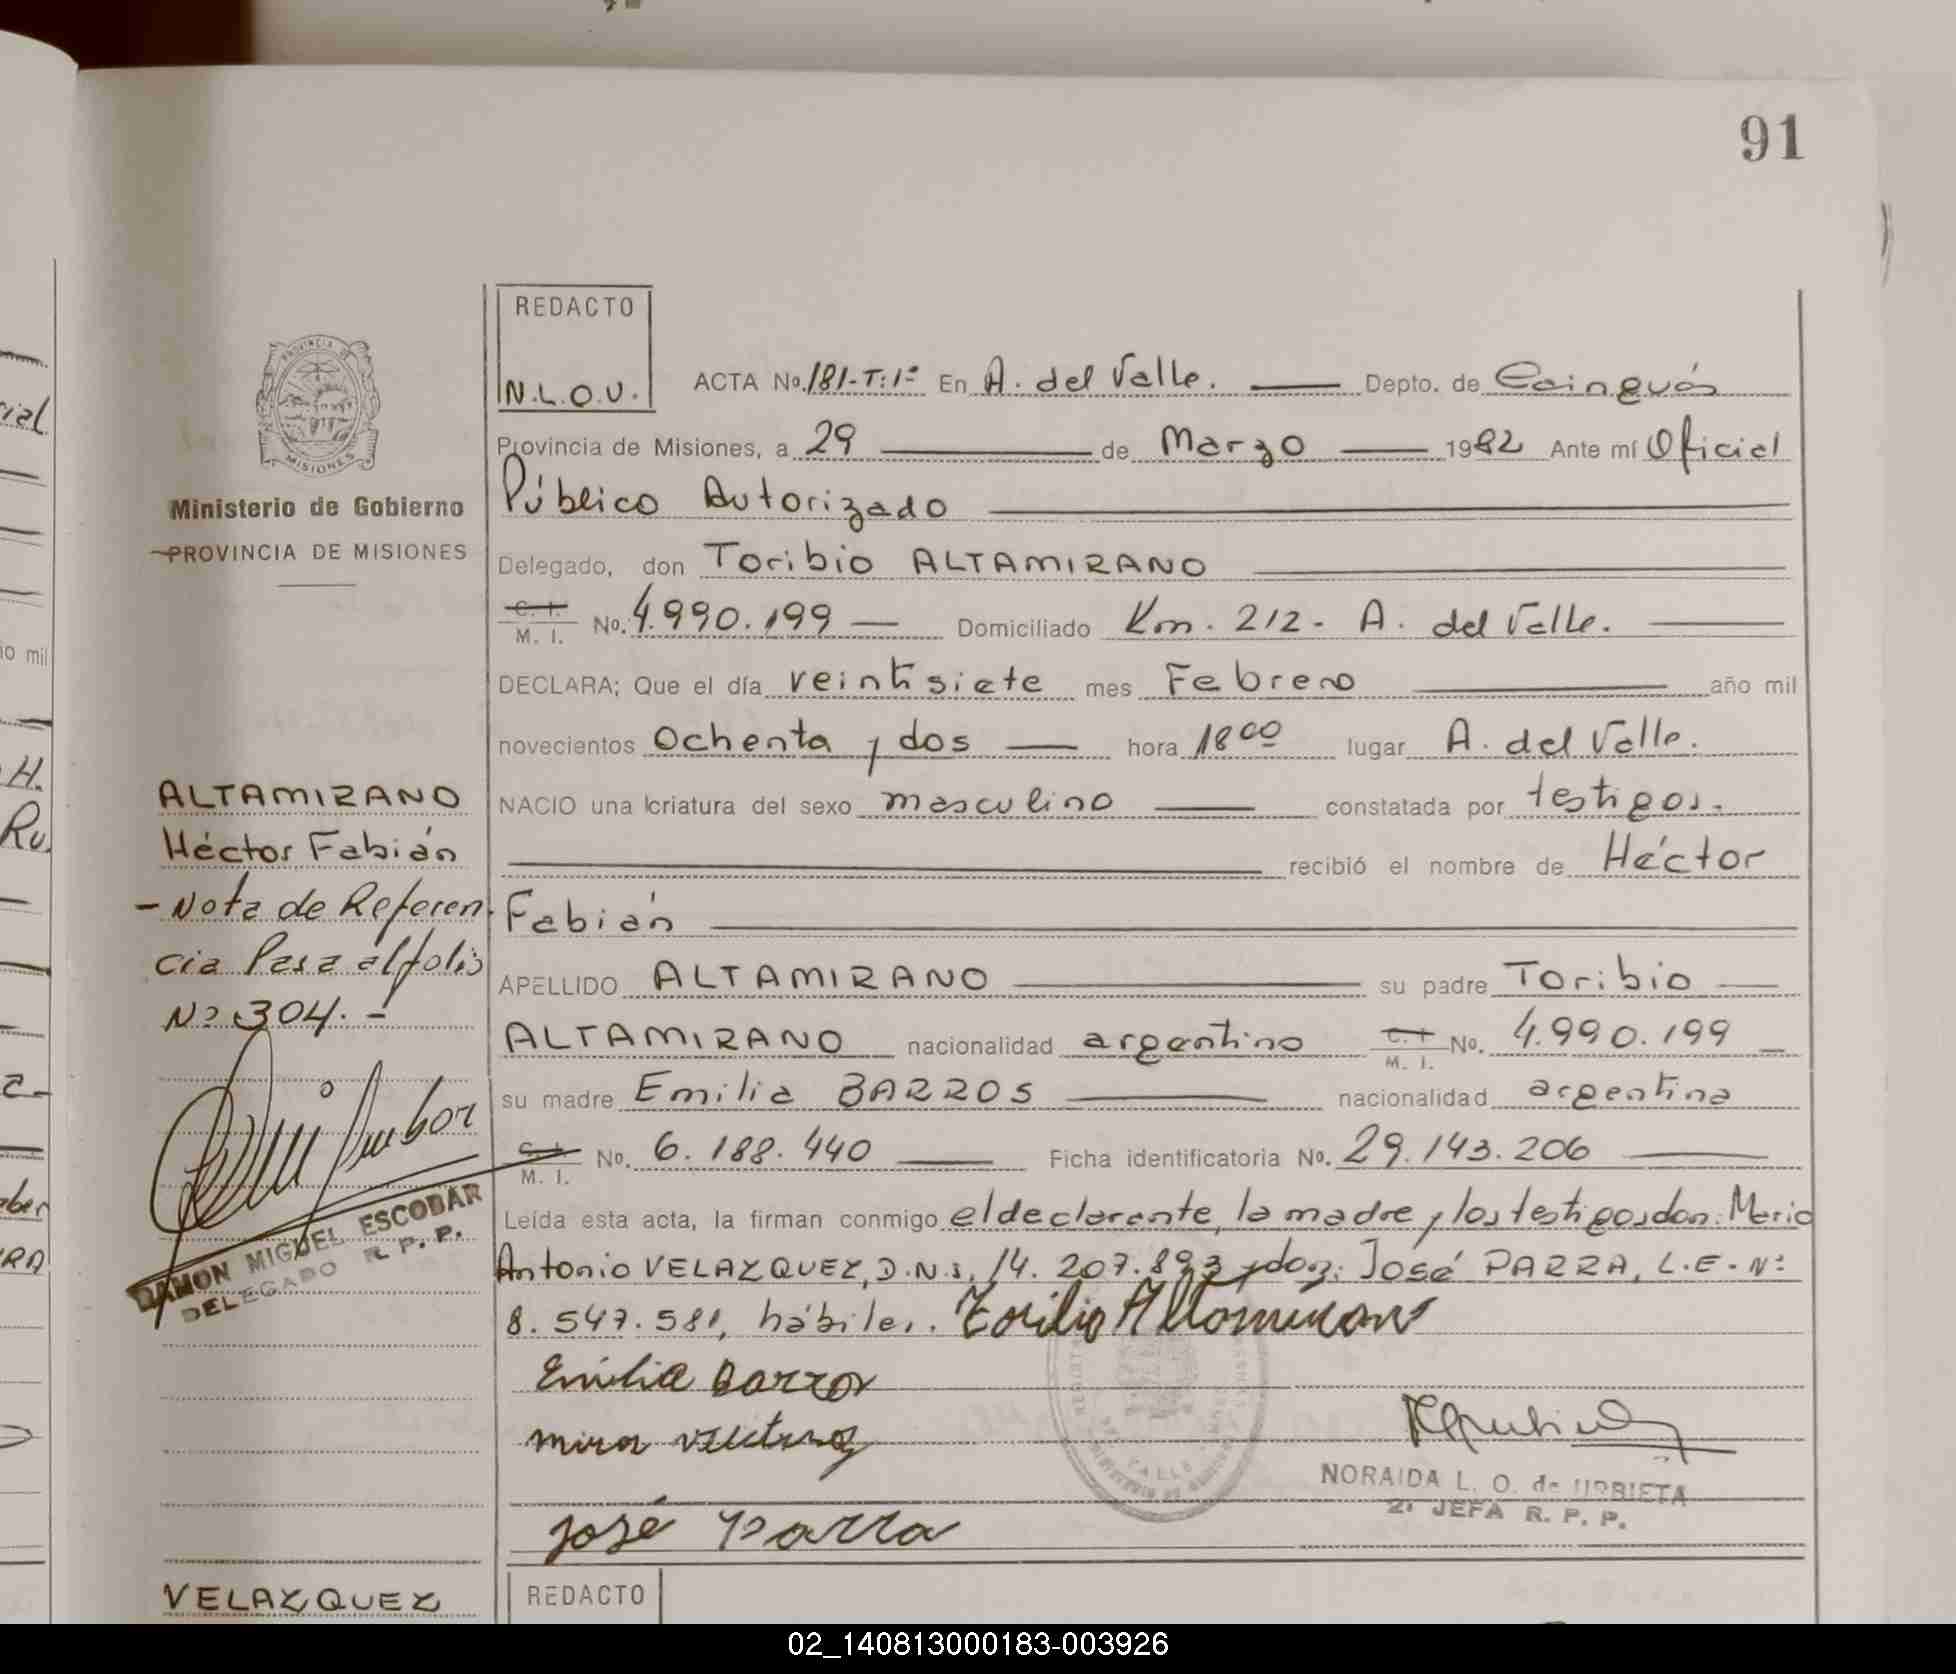 91
REDACTO
N.L.O.U.
ACTA No. 181-T:1º En A. del Valle. Depto. de Cainguás
Provincia de Misiones, a 29 de Marzo 1982 Ante mí Oficial
Público Autorizado
Delegado, don Toribio ALTAMIRANO
C. I.
M. I. No. 4.990.199 Domiciliado Km. 212 - A. del Valle.
DECLARA; Que el día veintisiete mes Febrero año mil
novecientos Ochenta y dos hora 18 00 lugar A. del Valle.
NACIO una criatura del sexo masculino constatada por testigos.
recibió el nombre de Héctor
Fabián
APELLIDO ALTAMIRANO su padre Toribio
ALTAMIRANO nacionalidad argentino C. I. M. I. No. 4.990.199
su madre Emilia BARROS nacionalidad argentina
C. I.
M. I. No. 6.188.440 Ficha identificatoria No. 29.143.206
Leída esta acta, la firman conmigo el declarante, la madre y los testigos don: Mario
Antonio VELAZQUEZ, D.N.I. 14.207.893 y don: José PARRA, L.E.-Nº
8.547.581, hábiles. Toribio Altamirano
Emilia Barros
José Parra
NORAIDA L. O. de URBIETA
2ª JEFA R. P. P.
PROVINCIA DE
MISIONES
Ministerio de Gobierno
PROVINCIA DE MISIONES
ALTAMIRANO
Héctor Fabián
- Nota de Referen-
cia Pasa al folio
Nº 304. -
RAMON MIGUEL ESCOBAR
DELEGADO R. P. P.
VELAZQUEZ
REDACTO
02_140813000183-003926